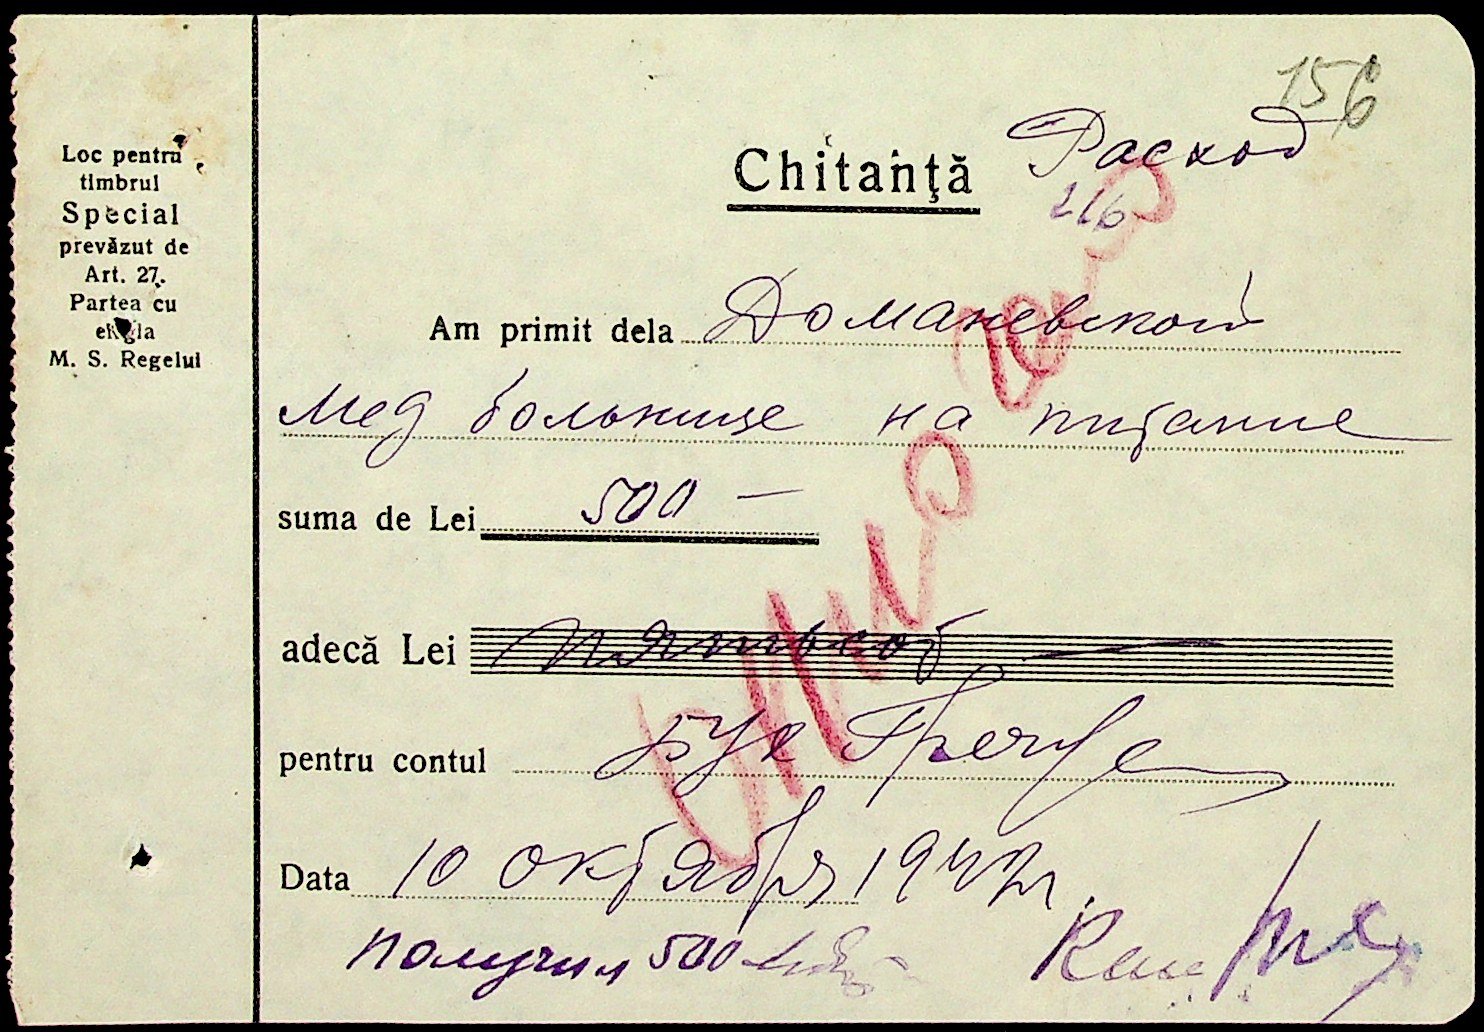 156
Loc pentru
timbrul
Special
prevăzut de
Art. 27.
Partea cu
efigia
M. S. Regelui
Chitanţă Расход
216
Am primit dela Доманевской
Мед больнице на питание
suma de Lei 500 —
adecă Lei Пятьсот —
pentru contul Бух
Data 10 октября 1942 г.
Получил 500